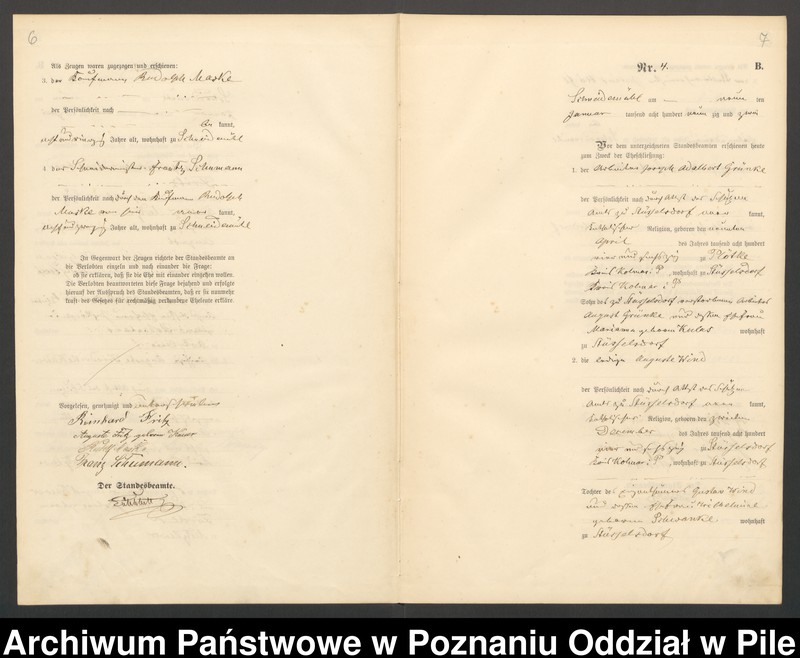 6
Als Zeugen waren zugezogen und erschienen:
3. der Kaufmann Rudolph Maske
der Persönlichkeit nach
kannt,
Jahre alt, wohnhaft zu Schneidemühl
4. der Schneidermeister Frantz Schumann
der Persönlichkeit nach durch den Kaufmann Rudolph
Maske kannt,
Jahre alt, wohnhaft zu Schneidemühl
In Gegenwart der Zeugen richtete der Standesbeamte an
die Verlobten einzeln und nach einander die Frage:
ob sie erklären, daß sie die Ehe mit einander eingehen wollen.
Die Verlobten beantworteten diese Frage bejahend und erfolgte
hierauf der Ausspruch des Standesbeamten, daß er sie nunmehr
kraft des Gesetzes für rechtmäßig verbundene Eheleute erkläre
Vorgelesen, genehmigt und unterschrieben
Reinhard Fritz
Auguste Fritz geboren
Rudolf Maske
Franz Schumann.
Der Standesbeamte.
7
Nr. 4. B.
Schneidemühl am neun ten
Januar tausend acht hundert neun zig und zwei
Vor dem unterzeichneten Standesbeamten erschienen heute
zum Zweck der Eheschließung:
1. der Arbeiter Joseph Adalbert Grünke
der Persönlichkeit nach durch Attest des Schulzen
Amts zu Stüsselsdorf kannt,
katholischer Religion, geboren den neunten
April des Jahres tausend acht hundert
vier und sechszig zu Plötke
Kreis Kolmar i. P., wohnhaft zu Stüsselsdorf
Kreis Kolmar i. P.
Sohn des zu Stüsselsdorf verstorbenen Arbeiters
August Grünke und dessen Ehefrau
Marianna geborene Kulas wohnhaft
zu Stüsselsdorf
2. die ledige Auguste Wind
der Persönlichkeit nach durch Attest des Schulzen
Amts zu Stüsselsdorf kannt,
katholischer Religion, geboren den zweiten
December des Jahres tausend acht hundert
vier und sechszig zu Stüsselsdorf
Kreis Kolmar i. P., wohnhaft zu Stüsselsdorf
Tochter des Eigenthümers Gustav Wind
und dessen Ehefrau Wilhelmine
geborene wohnhaft
zu Stüsselsdorf
Archiwum Państwowe w Poznaniu Oddział w Pile